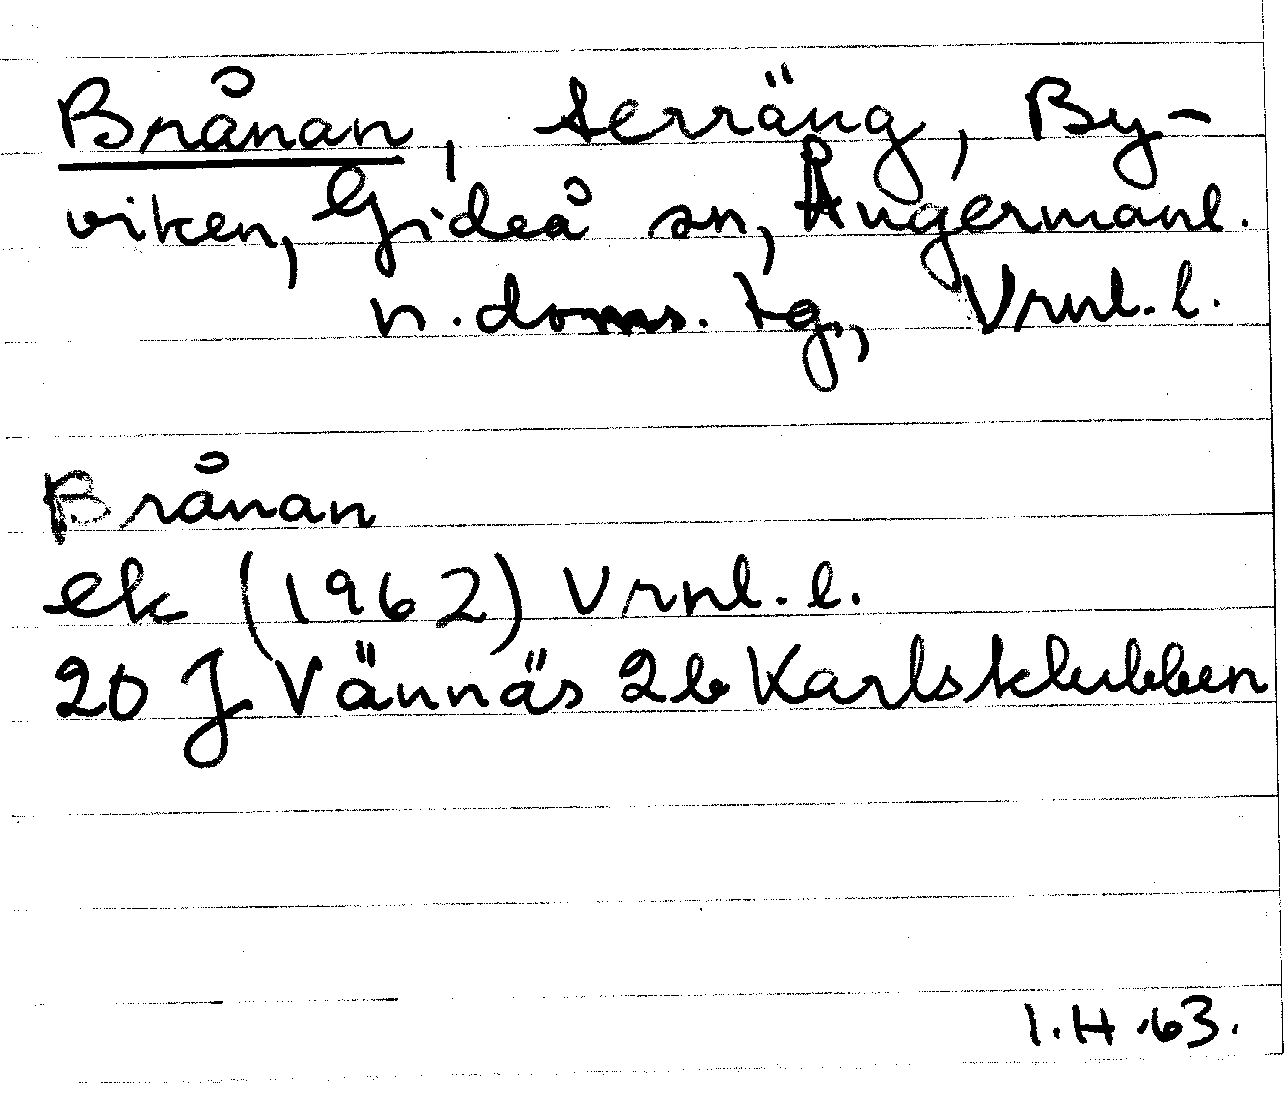 Brånan, terräng, By-
viken, Gideå sn, Ångermanl.
n. doms. tg, Vrnl. l.
Brånan
ek (1962) Vrnl. l.
20 J Vännäs 2b Karlsklubben
I.H.63.